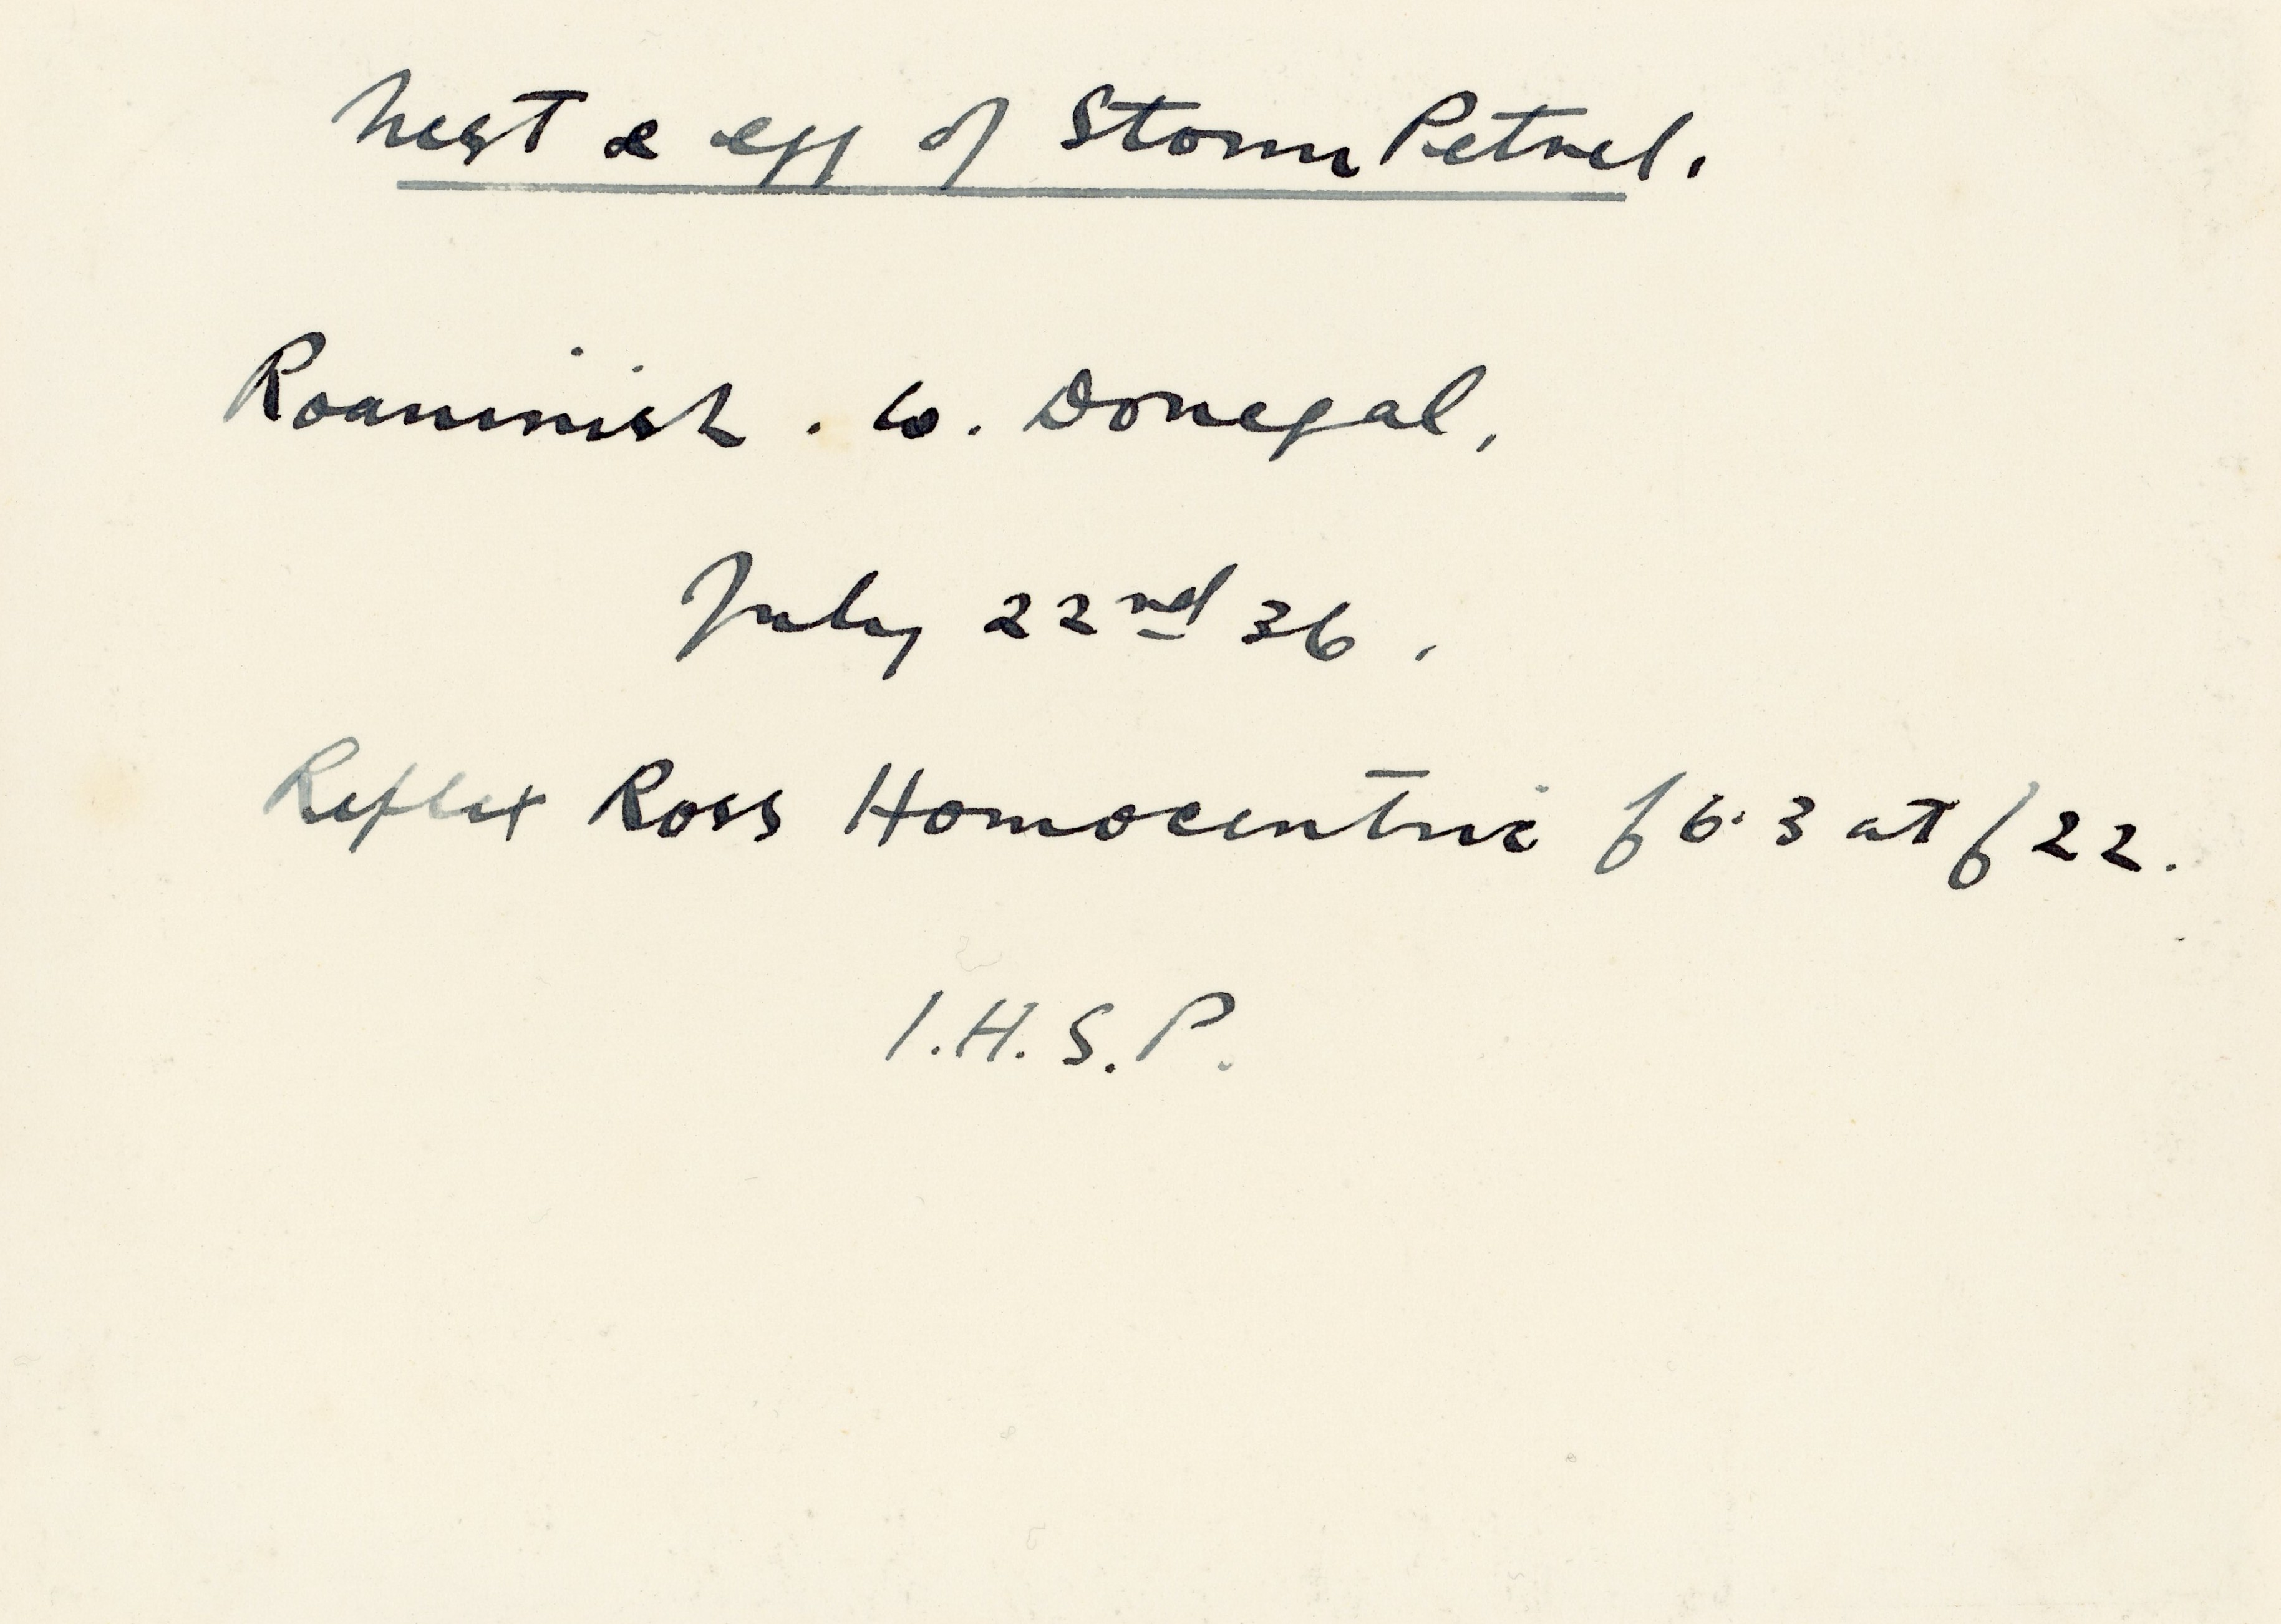 Nest & egg of Storm Petrel.
Roaninish. W. Donegal.
July 22nd 36.
Reflex Ross Homocentric f6.3 at f22.
I.H.S.P.